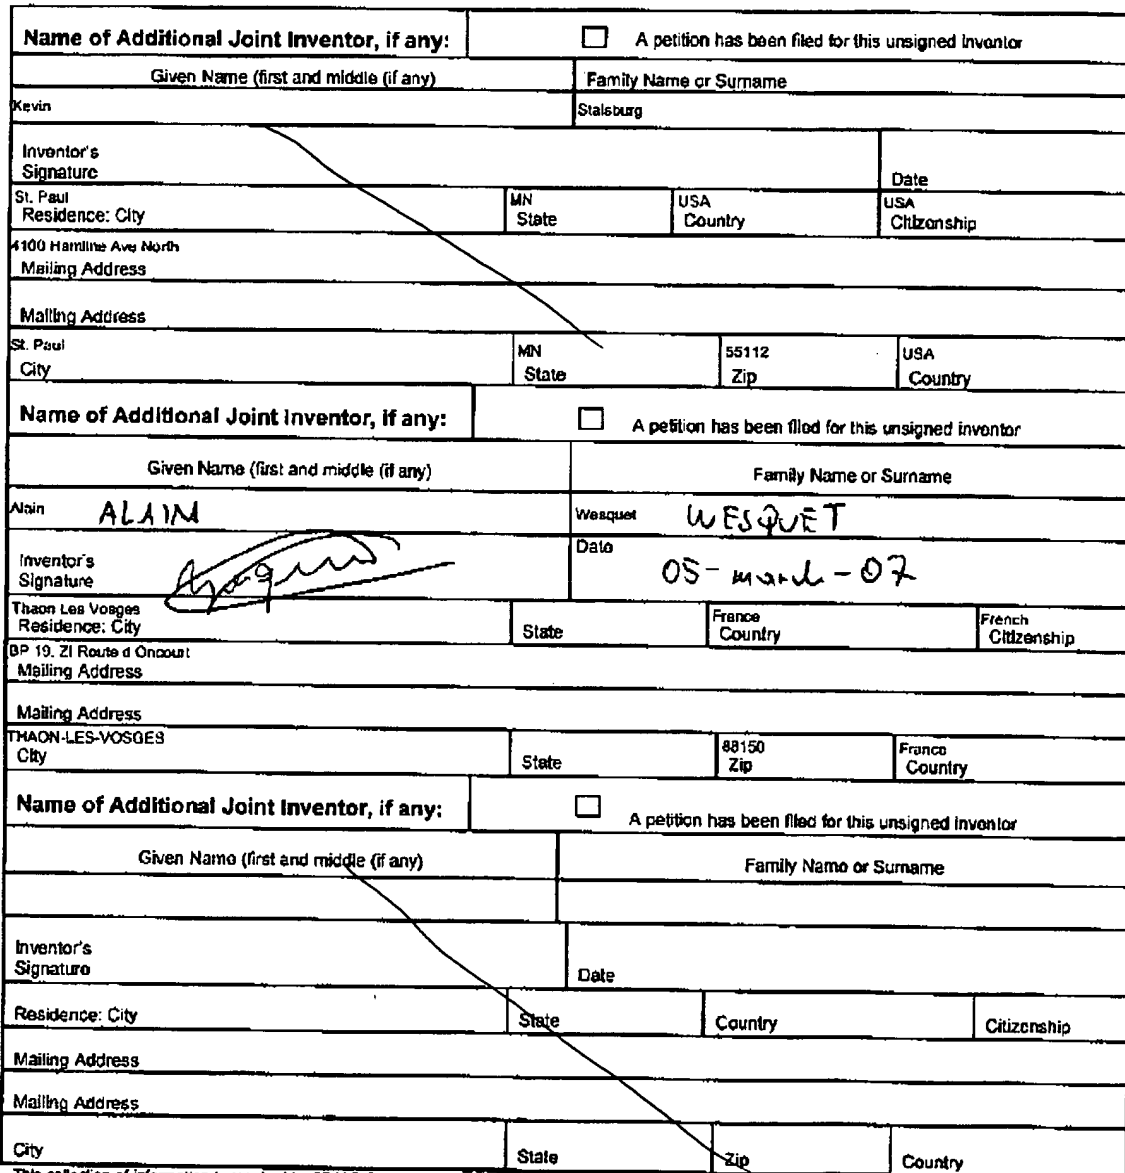 Name of Additional Joint Inventor, if any: A petition has been filed for this unsigned inventor
Given Name (first and middle (if any) Family Name or Surname
Kevin Stalsburg
Inventor's
Signature Date
St. Paul MN USA USA
Residence: City State Country Citizenship
4100 Hamline Ave North
Mailing Address
Mailing Address
St. Paul MN 55112 USA
City State Zip Country
Name of Additional Joint Inventor, if any: A petition has been filed for this unsigned inventor
Given Name (first and middle (if any) Family Name or Surname
Alain ALAIN Wesquet WESQUET
Inventor's Date
Signature 05-march-07
Thaon Les Vosges France French
Residence: City State Country Citizenship
BP 19. ZI Route d Oncourt
Mailing Address
Mailing Address
THAON-LES-VOSGES 88150 France
City State Zip Country
Name of Additional Joint Inventor, if any: A petition has been filed for this unsigned inventor
Given Name (first and middle (if any) Family Name or Surname
Inventor's
Signature Date
Residence: City State Country Citizenship
Mailing Address
Mailing Address
City State Zip Country